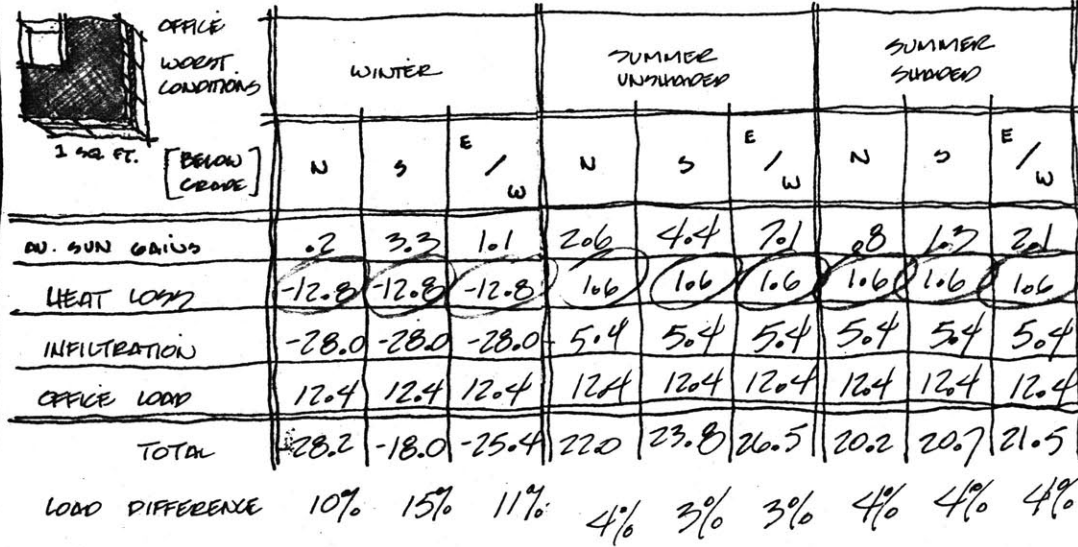 OFFICE
WORST
CONDITIONS
1 SQ. FT.
[BELOW
GRADE]
WINTER
SUMMER
UNSHADED
SUMMER
SHADED
N S E/W N S E/W N S E/W
AV. SUN GAINS .2 3.3 1.1 2.6 4.4 7.1 .8 1.3 2.1
HEAT LOSS -12.8 -12.8 -12.8 1.6 1.6 1.6 1.6 1.6 1.6
INFILTRATION -28.0 -28.0 -28.0 5.4 5.4 5.4 5.4 5.4 5.4
OFFICE LOAD 12.4 12.4 12.4 12.4 12.4 12.4 12.4 12.4 12.4
TOTAL -28.2 -18.0 -25.4 22.0 23.8 26.5 20.2 20.7 21.5
LOAD DIFFERENCE 10% 15% 11% 4% 3% 3% 4% 4% 4%